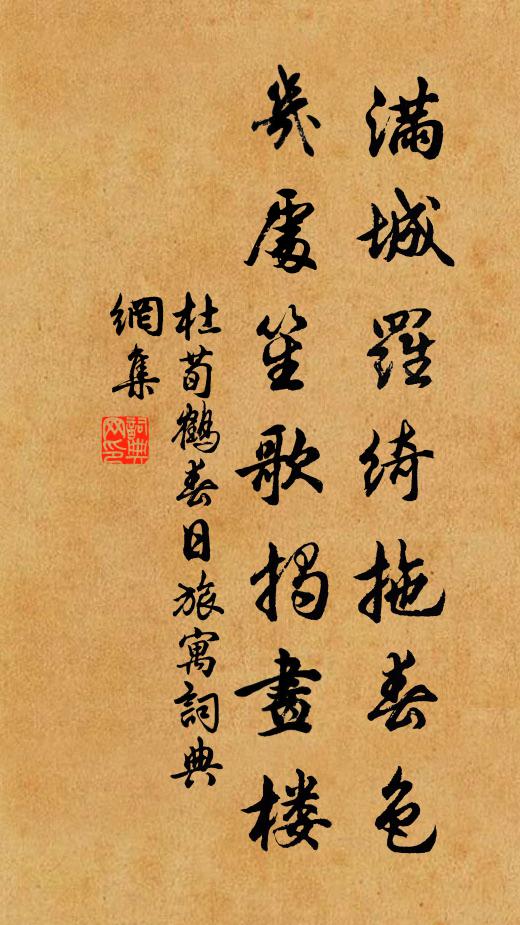 滿城羅綺拖春色
幾處笙歌揭畫楼
杜荀鶴春日旅寓詞典
網集
詞典网印